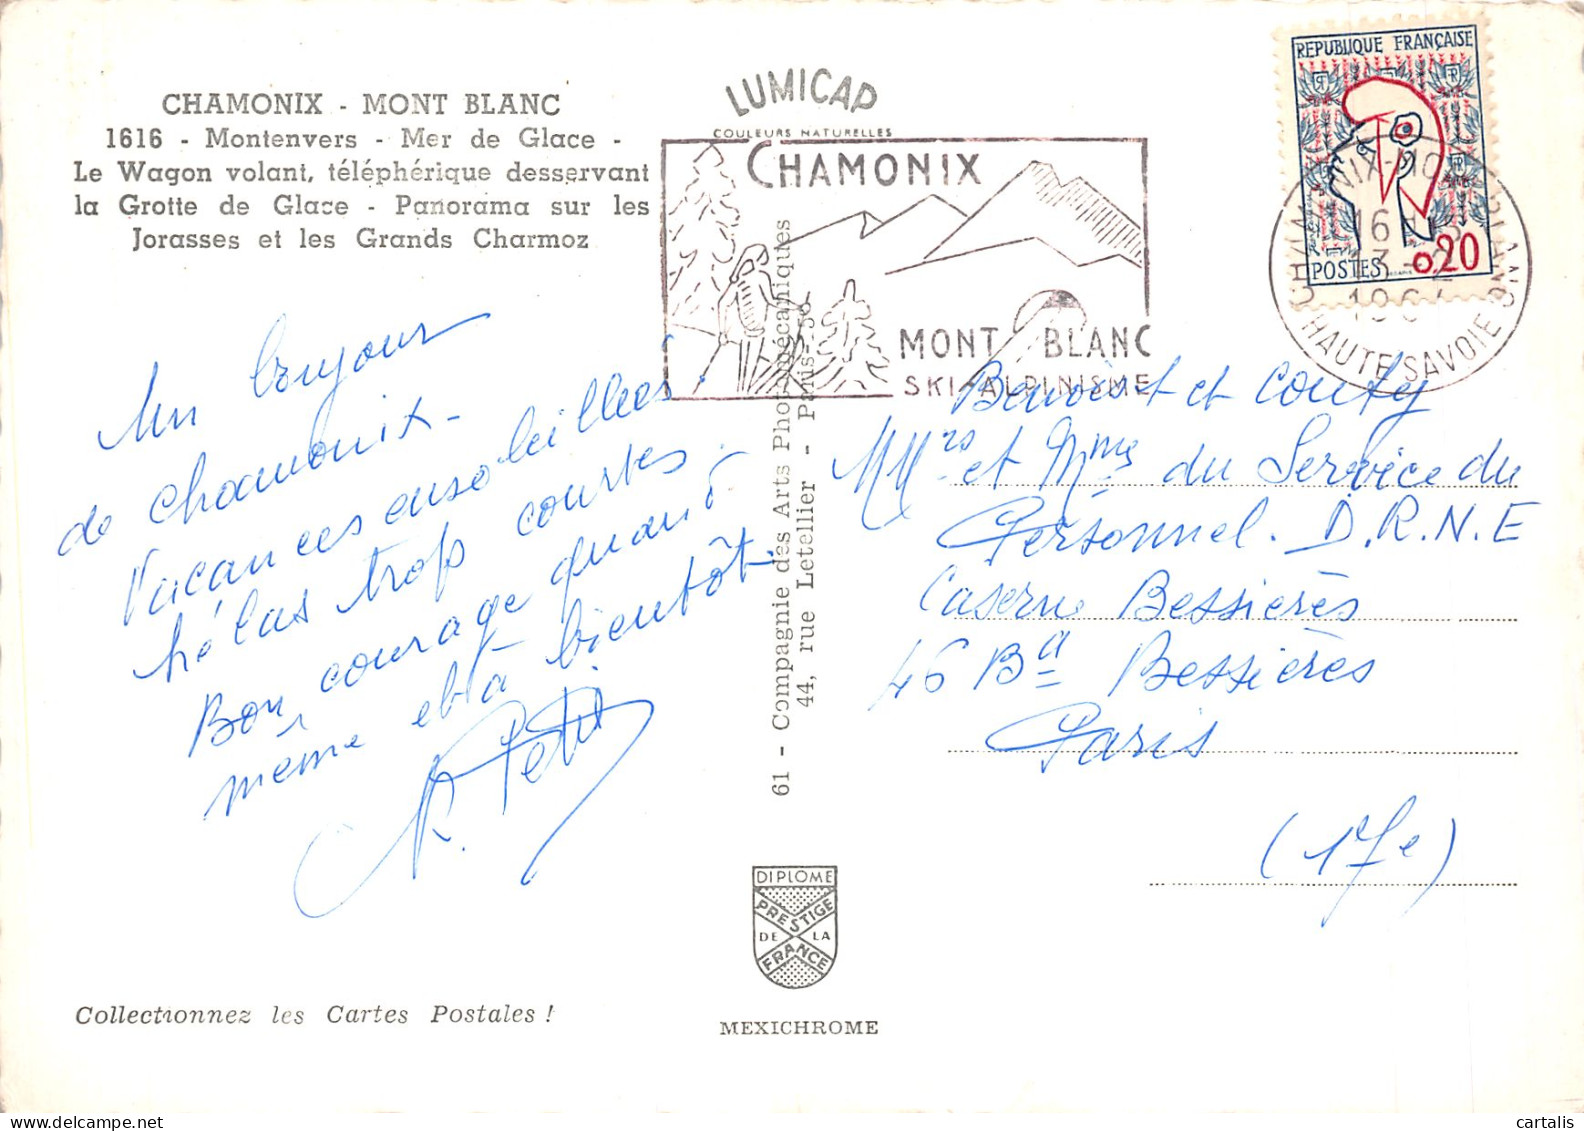 CHAMONIX - MONT BLANC
1616 - Montenvers - Mer de Glace -
Le Wagon volant, téléphérique desservant
la Grotte de Glace - Panorama sur les
Jorasses et les Grands Charmoz
LUMICAP
COULEURS NATURELLES
CHAMONIX
MONT BLANC
SKI-ALPINISME
REPUBLIQUE FRANÇAISE
POSTES 0,20
CHAMONIX-MONT-BLANC
16
13-2
HAUTE SAVOIE
Un bonjour
de Chamonix-
Vacances ensoleillées
hélas trop courtes.
Bon courage quand
même et à bientôt.
Petit
61 - Compagnie des Arts Photomécaniques
44, rue Letellier - Paris-
et Couty
MMrs et Mmes du Service du
Personnel. D.R.N.E
Caserne Bessières
46 Bd Bessières
Paris
(17e)
DIPLOME
PRESTIGE
DE LA
FRANCE
Collectionnez les Cartes Postales !
MEXICHROME
cartalis